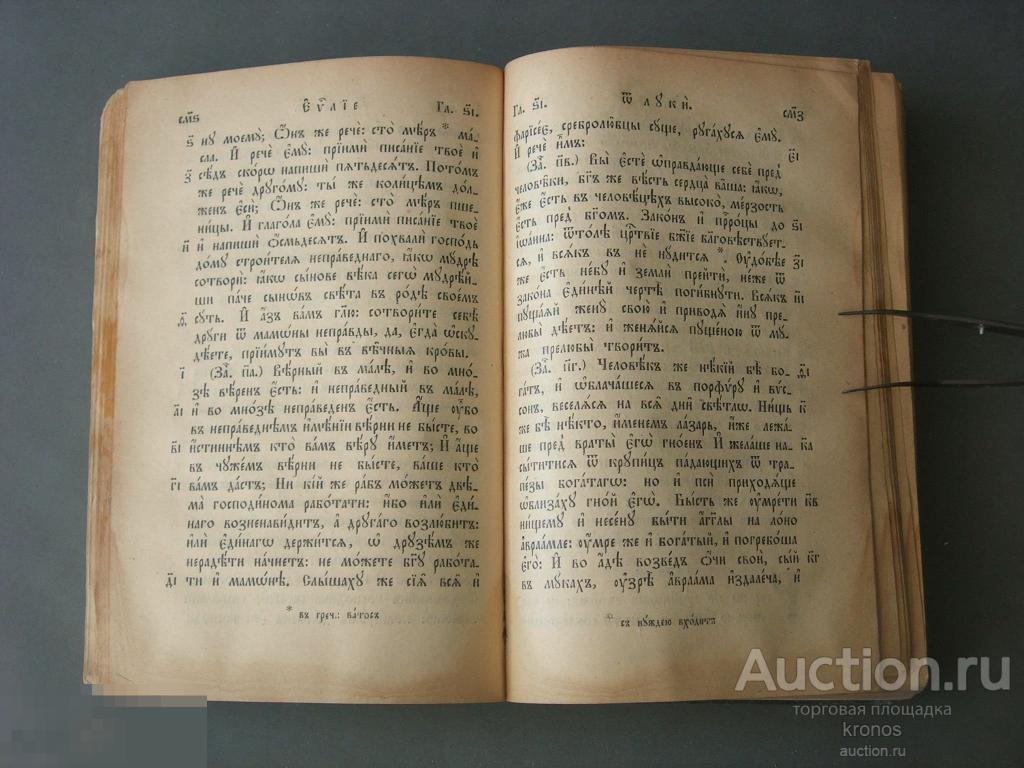 см҃ѕ Є҆ѵⷢ҇лїе Гл. ѕ҃і.
ѕ҃ ну моему̀; Ѻ҆́нъ же речѐ: сто̀ мѣ̑ръ * ма́-
сла. И҆ речѐ є҆му̀: прїимѝ писа́нїе твоѐ и҆
з҃ сѣ́дъ ско́рѡ напишѝ пѧтьдесѧ́тъ. Пото́мъ
же речѐ друго́му: ты́ же коли́цѣмъ до́л-
женъ є҆сѝ; Ѻ҆́нъ же речѐ: сто̀ мѣ̑ръ пше-
ни́цы. И҆ глаго́ла є҆му̀: прїимѝ писа́нїе твоѐ
и҃ и҆ напишѝ ѻ҆́смьдесѧтъ. И҆ похвалѝ госпо́дь
до́му строи́телѧ непра́веднаго, ꙗ҆́кѡ му́дрѣ
сотворѝ: ꙗ҆́кѡ сы́нове вѣ́ка сегѡ̀ мудрѣ́й-
ши па́че сынѡ́въ свѣ́та въ ро́дѣ свое́мъ
ѳ҃ су́ть. И҆ а҆́зъ ва́мъ гл҃ю: сотвори́те себѣ̀
дрꙋ́ги ѿ мамѡ́ны непра́вды, да, є҆гда̀ ѡ҆скꙋ-
дѣ́ете, прїи́мутъ вы̀ въ вѣ́чныѧ кро́вы.
і҃ (За҄. п҃а.) Вѣ́рный въ ма́лѣ, и҆ во мно́-
зѣ вѣ́ренъ є҆́сть: и҆ непра́ведный въ ма́лѣ,
а҃і и҆ во мно́зѣ непра́веденъ є҆́сть. А҆́ще ᲂу҆̀бо
въ непра́веднѣмъ и҆мѣ́нїи вѣ́рни не бы́сте, во
в҃і и҆́стиннѣмъ кто̀ ва́мъ вѣ́ру и҆́метъ; И҆ а҆́ще
въ чуже́мъ вѣ́рни не бы́сте, ва́ше кто̀
г҃і ва́мъ да́стъ; Ни кі́й же ра́бъ мо́жетъ двѣ-
ма̀ господи́нома рабо́тати: и҆́бо и҆лѝ є҆ди́-
наго возненави́дитъ, а҆ друга́го возлю́битъ:
и҆лѝ є҆ди́нагѡ держи́тсѧ, ѡ҆ друзѣ́мъ же
неради́ти на́чнетъ: не мо́жете бг҃у рабо́та-
д҃і ти и҆ мамѡ́нѣ. Слы́шаху же сїѧ̑ всѧ̑ и҆
* въ греч.: ва́тосъ
Гл. ѕ҃і. Ѿ лукѝ. см҃з
фарїсе́є, сребролю́бцы су́ще, руга́хусѧ є҆му̀.
И҆ речѐ и҆̀мъ: є҃і
(За҄. п҃в.) Вы̀ є҆стѐ ѡ҆правда́юще себѐ пред̾
человѣ̑ки, бг҃ъ же вѣ́сть сердца̀ ва̑ша: ꙗ҆́кѡ,
є҆́же є҆́сть въ человѣ́цѣхъ высо́ко, ме́рзость
є҆́сть пред̾ бг҃омъ. Зако́нъ и҆ прⷪ҇ро́цы до ѕ҃і
і҆ѡа́нна: ѿто́лѣ црⷭ҇твїе бж҃їе благовѣству́ет-
сѧ, и҆ всѧ́къ въ нѐ ну́дитсѧ *. Оу҆до́бѣе з҃і
же є҆́сть не́бу и҆ землѝ прейтѝ, не́же ѿ
зако́на є҆ди́нѣй чертѣ̀ поги́бнути. Всѧ́къ и҃і
пуща́ѧй жену̀ свою̀ и҆ приводѧ̀ и҆́ну пре-
любы̀ дѣ́етъ: и҆ женѧ́йсѧ пуще́ною ѿ му́-
жа прелюбы̀ твори́тъ.
(За҄. п҃г.) Человѣ́къ же нѣ́кїй бѣ̀ бо- ѳ҃і
га́тъ, и҆ ѡ҆блача́шесѧ въ порфѵ́ру и҆ вѵ́с-
сонъ, веселѧ́сѧ на всѧ̑ дни̑ свѣ́тлѡ. Ни́щь к҃
же бѣ̀ нѣ́кто, и҆́менемъ ла́зарь, и҆́же лежа́-
ше пред̾ враты̀ є҆гѡ̀ гно́енъ И҆ жела́ше на- к҃а
сы́титисѧ ѿ крупи́цъ па́дающихъ ѿ тра-
пе́зы бога́тагѡ: но и҆ псѝ приходѧ́ще
ѡ҆близа́ху гно́й є҆гѡ̀. Бы́сть же ᲂу҆мре́ти к҃в
ни́щему и҆ несе́ну бы́ти а҆́гг҃лы на ло́но
а҆враа́мле: ᲂу҆́мре же и҆ бога́тый, и҆ погребо́ша
є҆го̀: И҆ во а҆́дѣ возве́дъ ѻ҆́чи своѝ, сы́й к҃г
въ му́кахъ, ᲂу҆зрѣ̀ а҆враа́ма и҆здале́ча, и҆
* съ ну́ждею вхо́дитъ
Auction.ru
торговая площадка
kronos
auction.ru